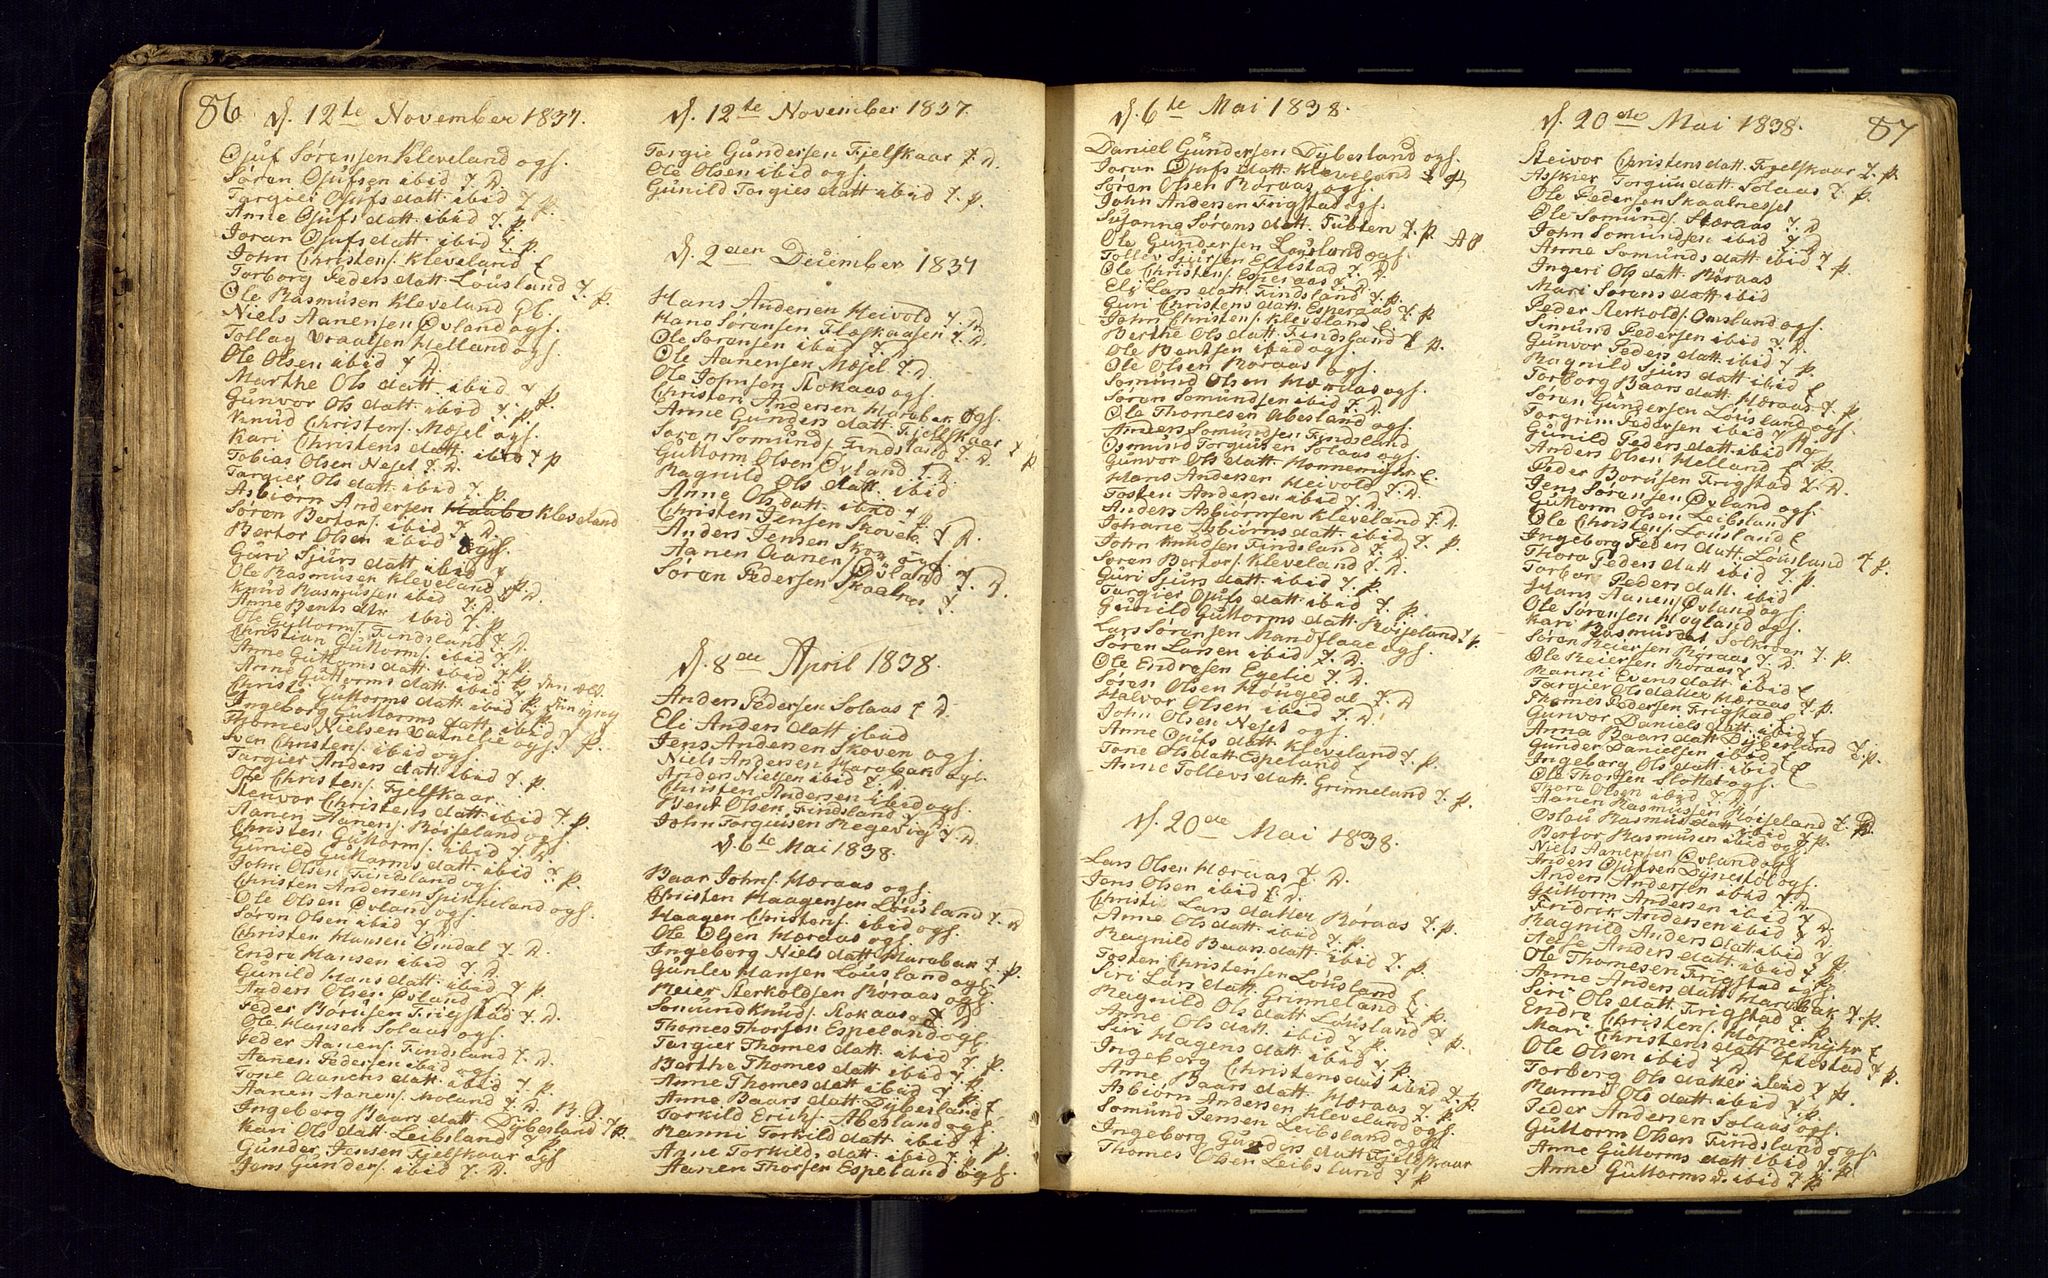 86. d. 12te November 1837.
Ojuf Sørensen Kleveland ogs.
Søren Ojufsen ibid 7. D.
Targier Ojufs datt. ibid 7 p.
Anne Ojufs datt. ibid 7. p.
Joran Ojufsdatt. ibid 7. p.
John Christens. Kleveland C
Torborg Peders datt. Lousland 7. p.
Ole Rasmusen Kleveland
Niels Aanensen Øvland ogs.
Tollag Vraalsen Helland ogs.
Ole Olsen ibid 7 D.
Marthe Ols datt. ibid 7. p.
Gunvor Ols datt. ibid 7. p.
Knud Christens. Mæsel ogs.
Kari Christens datt. ibid 7 p
Tobias Olsen Nesel 7. D.
Targier Ols datt. ibid 7. p.
Asbiørn Andersen Kleveland
Søren Bertors. ibid 7 D.
Bertor Olsen ibid ogs.
Guri Sjurs datt. ibid 7
Ole Rasmusen Kleveland 7 D.
Knud Rasmussen ibid 7. D.
Anne Bents dtr ibid 7. p.
Ole Guttorms. Findsland 7 D
Christian Guttorms. ibid 7. D.
Anne Guttorms datt. ibid 7. p. den æld.
Anne Guttorms datt. ibid 7. p. den yng
Christi Guttorms datt. ibid 7. p.
Ingeborg Guttorms datt. ibid 7. p.
Thomes Nielsen ogs.
Sven Christens. ibid ogs.
Targier Anders datt. ibid 7. p.
Ole Christens. Fjelskaar.
Stenvor Christens datt. ibid 7. p.
Aanen Aanens. Røiseland ogs.
Christen Guttorms. ibid 7. D.
Gunild Guttorms datt. ibid 7. p.
John Olsen Findsland ogs.
Christen Andersen Spikkeland ogs.
Ole Olsen Øvland ogs.
Søren Olsen ibid 7. D
Christen Hansen Øindal 7. D.
Endre Hansen ibid 7. D.
Gunild Hans datt. ibid 7. p.
Anders Olsen Øvland 7. D
Peder Borusen Frigstad 7. D.
Ole Hansen Solaas ogs.
Peder Aanens. Findsland 7. D.
Aanen Pedersen ibid ogs.
Tone Aanens datt. ibid 7. p.
Aanen Aanens. Moland 7. D.
Ingeborg Baars datt. Dybesland 7 p.
Kari Ols datt. Leibsland 7. p.
Gunder Jensen Fjelskaar ogs
Jens Gunders. ibid 7. D.
d. 12te November 1837.
Targie Gundersen Fjelskaar 7. D.
Ole Olsen ibid ogs.
Gunild Targies datt. ibid 7. p.
d. 2den December 1837
Hans Andersen Heivold 7. D
Hans Sørensen Flæskaasen 7. D.
Ole Sørensen ibid 7. D
Ole Aanensen Mæsel 7. D.
Ole Johnsen Stokaas ogs.
Christen Andersen Marabak ogs.
Anne Gunders datt. Fjelskaar 7 p
Søren Somunds. Findsland 7. D
Guttorm Olsen Øvland 7. D.
Ragnild Ols datt. ibid
Anne Ols datt. ibid 7. p.
Christen Jensen Skoven 7 D.
Anders Jensen Skov ogs.
Aanen Aanens. Øvland 7. D.
Søren Pedersen Skaalnes 7.
d. 8de April 1838.
Anders Pedersen Solaas 7 D.
Eli Anders datt. ibid
Jens Andersen Skoven ogs.
Niels Andersen Marabak ogs.
Anders Nielsen ibid 7. D.
Christen Andersen ibid ogs.
Bent Olsen Findsland 7. D.
John Torguisen Regevig 7. D.
d 6te Mai 1838.
Baar Johns. Hæraas ogs.
Christen Haagensen Lousland 7. D
Haagen Christens. ibid ogs.
Ole Olsen Hæraas ogs.
Ingeborg Niels datt. Marabak 7. p.
Gunlev Hansen Lousland ogs.
Reier Sterkoldsen Røraas ogs.
Somund Knuds. Stokaas 7 D
Thomes Thorsen Espeland ogs.
Targier Thomes datt. ibid 7. p
Berthe Thomes datt. ibid 7. p.
Anne Thomes datt. ibid 7. p.
Anne Baars datt. Dybesland C
Torkild Erichs. Abesland ogs.
Ranni Torkild datt. ibid C
Anne Torkilds datt. ibid 7. p.
Aanen Thorsen Espeland ogs.
d. 6te Mai 1838.
Daniel Gundersen Dybesland ogs.
Joran Ojufs datt. Kleveland
Søren Olsen Røraas ogs.
John Andersen Frigstad ogs.
Susanna Sørens datt. Tubten 7. p.
Ole Gundersen Lousland ogs.
Tollev Sjursen Eftestad 7. D
Ole Christens. Esperaas 7. D
Eli Lars datt. Findsland 7. p.
Guri Christens datt. Esperaas 7 p
John Christens. Kleveland C
Berthe Ols datt. Findsland 7 p.
Ole Bentsen ibid ogs.
Ole Olsen Røraas ogs.
Somund Olsen Hæraas ogs.
Søren Somundsen ibid 7. D
Ole Thomesen Abesland ogs.
Anders Somundsen Findsland
Osmund Torguisen Solaas ogs.
Gunvor Ols datt. Honnemyhr C
Hans Andersen Heivold 7. D
Tosten Andersen ibid 7. D.
Anders Asbiørnsen Kleveland 7. D.
Johane Asbiørns datt. ibid 7. p.
John Knudsen Findsland 7. D.
Søren Bertors. Kleveland 7. D.
Guri Sjurs datt. ibid 7. p.
Targier Ojufs datt. ibid 7. p.
Gunild Guttorms datt. Roiseland 7 p.
Lars Sørensen Mandflaae ogs.
Søren Larsen ibid 7. D.
Ole Endresen Egelie 7. D
Søren Olsen Hougedal 7. D
Halvor Olsen ibid 7. D.
John Olsen Nesel ogs.
Anne Ojufs datt. Kleveland 7. p.
Tone Ols datt. Espeland C
Anne Tollevs datt. Grinneland 7. p.
d. 20de Mai 1838.
Lars Olsen Hæraas 7. D.
Jens Olsen ibid 7. D.
Christi Lars datter Røraas 7. p.
Anne Ols datt. ibid 7. p.
Ragnild Baars datt. ibid 7. p.
Tosten Christensen Lousland C.
Siri Lars datt. Grinneland C
Ragnild Ols datt. Lousland 7. p.
Anne Ols datt. ibid 7. p.
Siri Hagens datt. ibid 7. p.
Ingeborg Christens datt. ibid 7. p.
Anne Baars datt. Hæraas 7 p.
Asbiørn Andersen Kleveland ogs.
Somund Jensen Leibsland ogs.
Ingeborg Gunders datt. Fjelskaar
Thomes Olsen Leibsland 7 p
d. 20de Mai 1838. 87
Steivor Christens datt. Fjelskaar 7. p.
Askier Torguus datt. Solaas 7. p.
Ole Pedersen Skaalnesset
Ole Somunds. Storaas 7. D
John Somundsen ibid 7. D
Anne Somunds datt. ibid 7. p.
Ingeri Ols datt. Røraas
Mari Sørens datt. ibid
Peder Sterkolds. Omsland ogs.
Simund Pedersen ibid 7. D.
Gunvor Peders datt. ibid 7. p.
Ragnild Sjurs datt. ibid C
Torborg Baars datt. Hæraas 7. p.
Søren Gundersen Lousland ogs.
Torgrim Pedersen ibid 7. D.
Gunild Peders datt. ibid 7 p.
Anders Olsen Helland C
Peder Borusen Frigstad 7. D.
Jens Sørensen Øvland ogs.
Guttorm Olsen Leibsland
Ole Christens. Lousland C
Ingeborg Peders datt. Lousland 7 p.
Thora Peders datt. ibid 7. p.
Torbor Peders datt. ibid
Hans Aanens. Øvland ogs.
Ole Sørensen Høyland ogs.
Kari Rasmusdat. Solkroen 7. p.
Søren Reiersen Røraas 7. D.
Ole Reiersen Røraas 7. D
Ranni Evens datt. ibid C
Targier Ols datter Hæraas 7. p.
Thomes Pedersen Frigstad C
Gunvor Daniels datt. ibid
Anna Baars datt. Dybesland 7. p.
Gunder Danielsen ibid C
Ingeborg Ols datt. ibid C
Ole Thorsen Slottet ogs.
Thora Olsen ibid 7. D
Aanen Rasmussen Roiseland 7. D
Oslau Rasmus datt. ibid 7. p.
Bertor Rasmusen ibid ogs.
Niels Aanensen Øvland ogs.
Anders Ojufsen Dynestøl ogs.
Anders Andersen ibid 7. D
Guttorm Andersen ibid 7. D
Fridrik Andersen ibid 7. D.
Ragnild Anders datt. ibid 7. p.
Aase Anders datt. ibid 7. p.
Ole Thomesen Frigstad ogs.
Anne Anders datt. Marabak 7. p.
Siri Ols datt. Frigstad 7. p.
Endre Christens. Honnemyhr C
Mari Christens datt. Uftestad 7. p.
Ole Olsen ibid 7. D
Torberg Ols datter ibid 7 p.
Ranni Ols datt. ibid 7. p.
Peder Andersen Solaas ogs.
Guttorm Olsen Findsland ogs.
Anne Guttorms datt. ibid 7. p.
Anne Guttormsd. ibid 7. p.